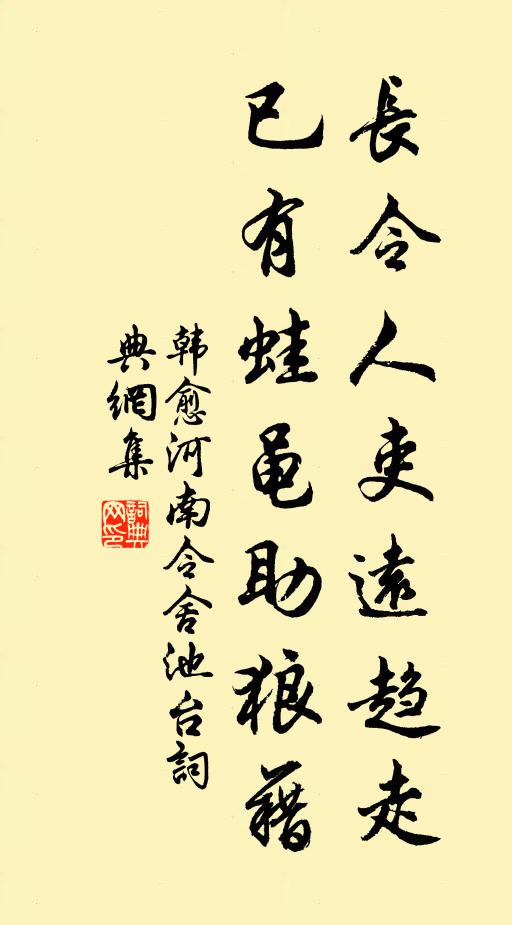 長令人吏遠趨走
已有蛙黽助狼藉
韩愈河南令舍池台詞
典網集
詞典网印